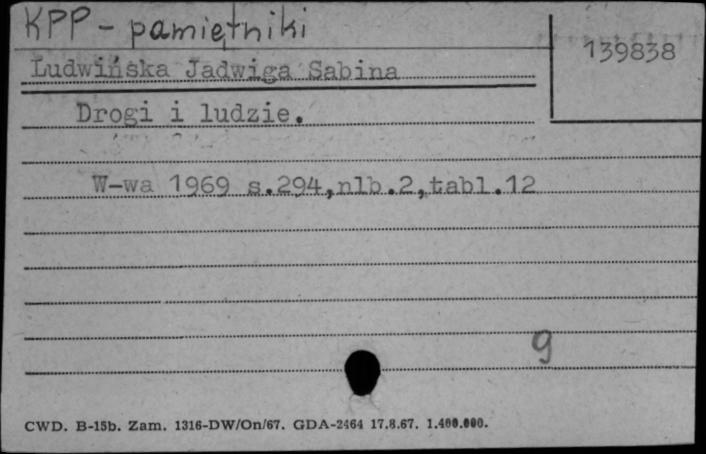 KPP - pamiętniki
139838
Ludwińska Jadwiga Sabina
Drogi i ludzie.
W-wa 1969 s.294,nlb.2,tabl.12
9
CWD. B-15b. Zam. 1316-DW/On/67. GDA-2464 17.8.67. 1.400.000.